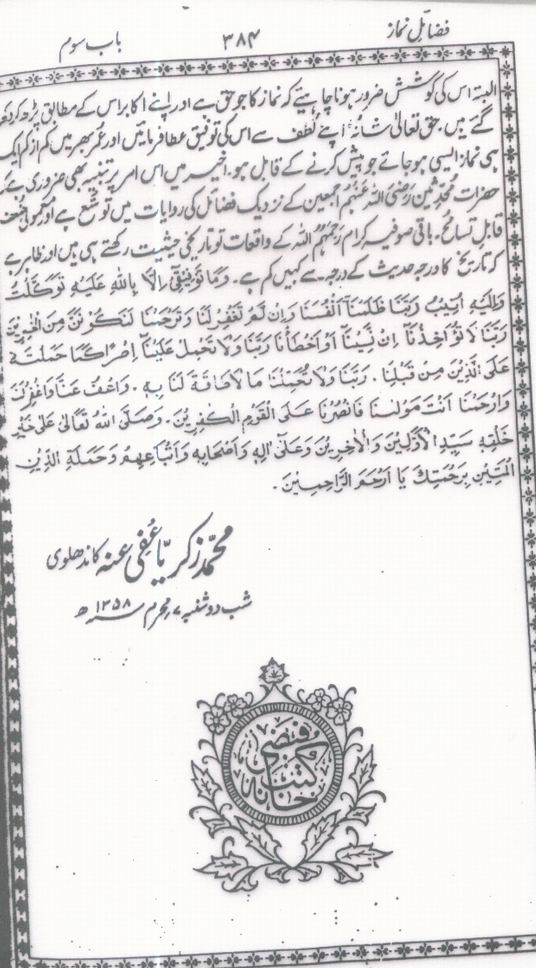 فضائل نماز
۳۸۴
باب سوم
البتہ اس کی کوشش ضرور ہونا چاہیئے کہ نماز کا جو حق ہے اور اپنے اکابر اس کے مطابق پڑھ کر دکھا
گئے ہیں۔ حق تعالیٰ شانہٗ اپنے لُطف سے اس کی توفیق عطا فرمائیں اور عمر بھر میں کم از کم ایک
ہی نماز ایسی ہو جائے جو پیش کرنے کے قابل ہو۔ اخیر میں اس امر پر تنبیہ بھی ضروری ہے کہ
حضرات محدثین رضی اللہ عنہم اجمعین کے نزدیک فضائل کی روایات میں توسُّع ہے اور معمولی ضعف
قابل تسامح۔ باقی صوفیہ کرام رحمہم اللہ کے واقعات تو تاریخی حیثیت رکھتے ہی ہیں اور ظاہر ہے
کہ تاریخ کا درجہ حدیث کے درجہ سے کہیں کم ہے۔ وَمَا تَوْفِيْقِیْ اِلَّا بِاللّٰهِ عَلَيْهِ تَوَكَّلْتُ
وَاِلَيْهِ اُنِيْبُ رَبَّنَا ظَلَمْنَآ اَنْفُسَنَا وَاِنْ لَّمْ تَغْفِرْ لَنَا وَتَرْحَمْنَا لَنَكُوْنَنَّ مِنَ الْخٰسِرِيْنَ
رَبَّنَا لَا تُؤَاخِذْنَآ اِنْ نَّسِيْنَآ اَوْ اَخْطَأْنَا رَبَّنَا وَلَا تَحْمِلْ عَلَيْنَآ اِصْرًا كَمَا حَمَلْتَهٗ
عَلَى الَّذِيْنَ مِنْ قَبْلِنَا۔ رَبَّنَا وَلَا تُحَمِّلْنَا مَا لَا طَاقَةَ لَنَا بِهٖ۔ وَاعْفُ عَنَّا وَاغْفِرْ لَنَا
وَارْحَمْنَا اَنْتَ مَوْلٰىنَا فَانْصُرْنَا عَلَى الْقَوْمِ الْكٰفِرِيْنَ۔ وَصَلَّى اللّٰهُ تَعَالٰى عَلٰى خَيْرِ
خَلْقِهٖ سَيِّدِ الْاَوَّلِيْنَ وَالْاٰخِرِيْنَ وَعَلٰى اٰلِهٖ وَاَصْحَابِهٖ وَاَتْبَاعِهِمْ وَحَمَلَةِ الدِّيْنِ
الْمَتِيْنِ بِرَحْمَتِكَ يَا اَرْحَمَ الرَّاحِمِيْنَ۔
محمد زکریا عُفِی عنہ کاندھلوی
شب دوشنبہ ۷ محرم ۱۳۵۸ھ
کتب خانہ فیضی